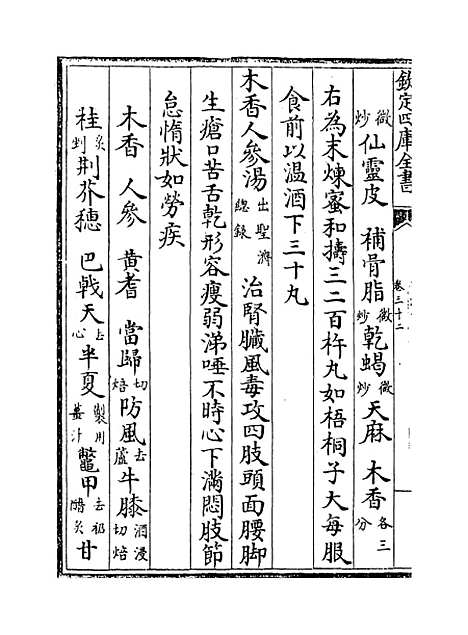 欽定四庫全書
卷三十二
微炒仙靈皮 補骨脂微炒乾蝎微炒天麻 木香各三分
右為末煉蜜和擣三二百杵丸如梧桐子大每服
食前以温酒下三十丸
木香人參湯出聖濟總錄 治腎臟風毒攻四肢頭面腰脚
生瘡口苦舌乾形容瘦弱涕唾不時心下滿悶肢節
怠惰狀如勞疾
木香 人參 黄耆 當歸切焙防風去蘆牛膝酒浸切焙
桂炙剉荆芥穗 巴戟天去心半夏製用薑汁鼈甲去裙醋炙甘